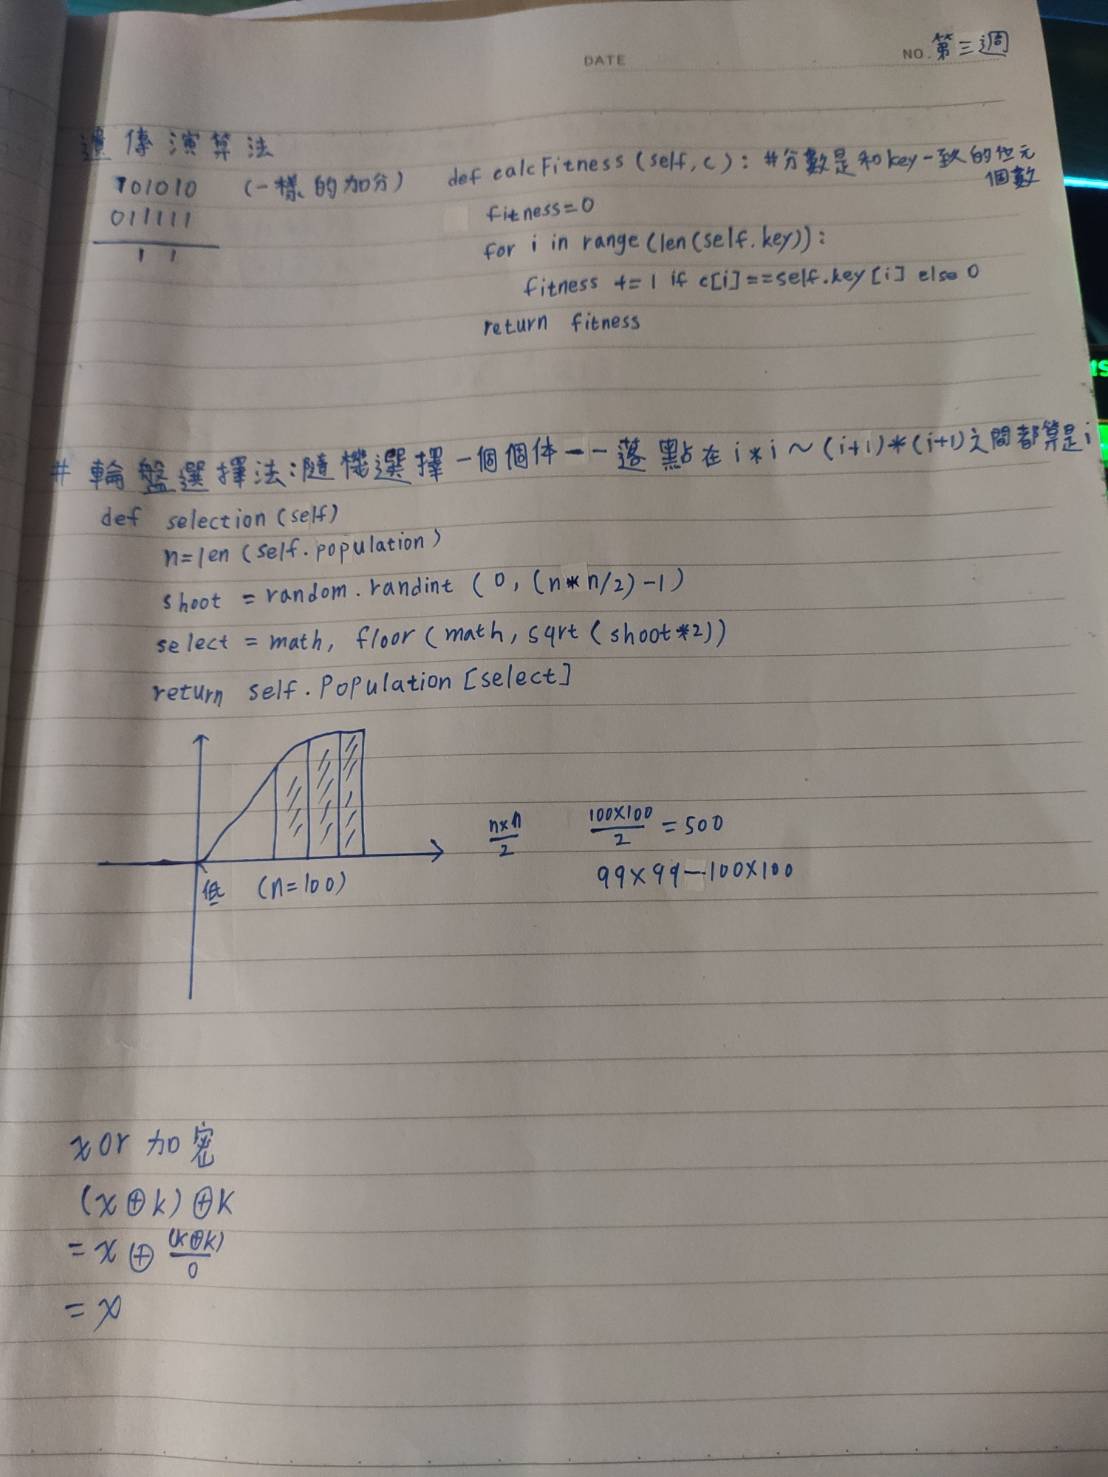 DATE
NO. 第三週
遺傳演算法
101010 (一樣的加分)
011111
1 1
def calcFitness(self,c): #分數是和key一致的位元
個數
fitness=0
for i in range(len(self.key)):
fitness += 1 if c[i]==self.key[i] else 0
return fitness
# 輪盤選擇法:隨機選擇一個個体--落點在 i*i~(i+1)*(i+1)之間都算是i
def selection(self)
n=len(self.population)
shoot = random.randint(0,(n*n/2)-1)
select = math, floor(math, sqrt(shoot*2))
return self.population[select]
低 (n=100)
n×n/2 100×100/2 = 500
99×99—100×100
xor 加密
(x⊕k)⊕k
= x⊕(k⊕k)
0
= x